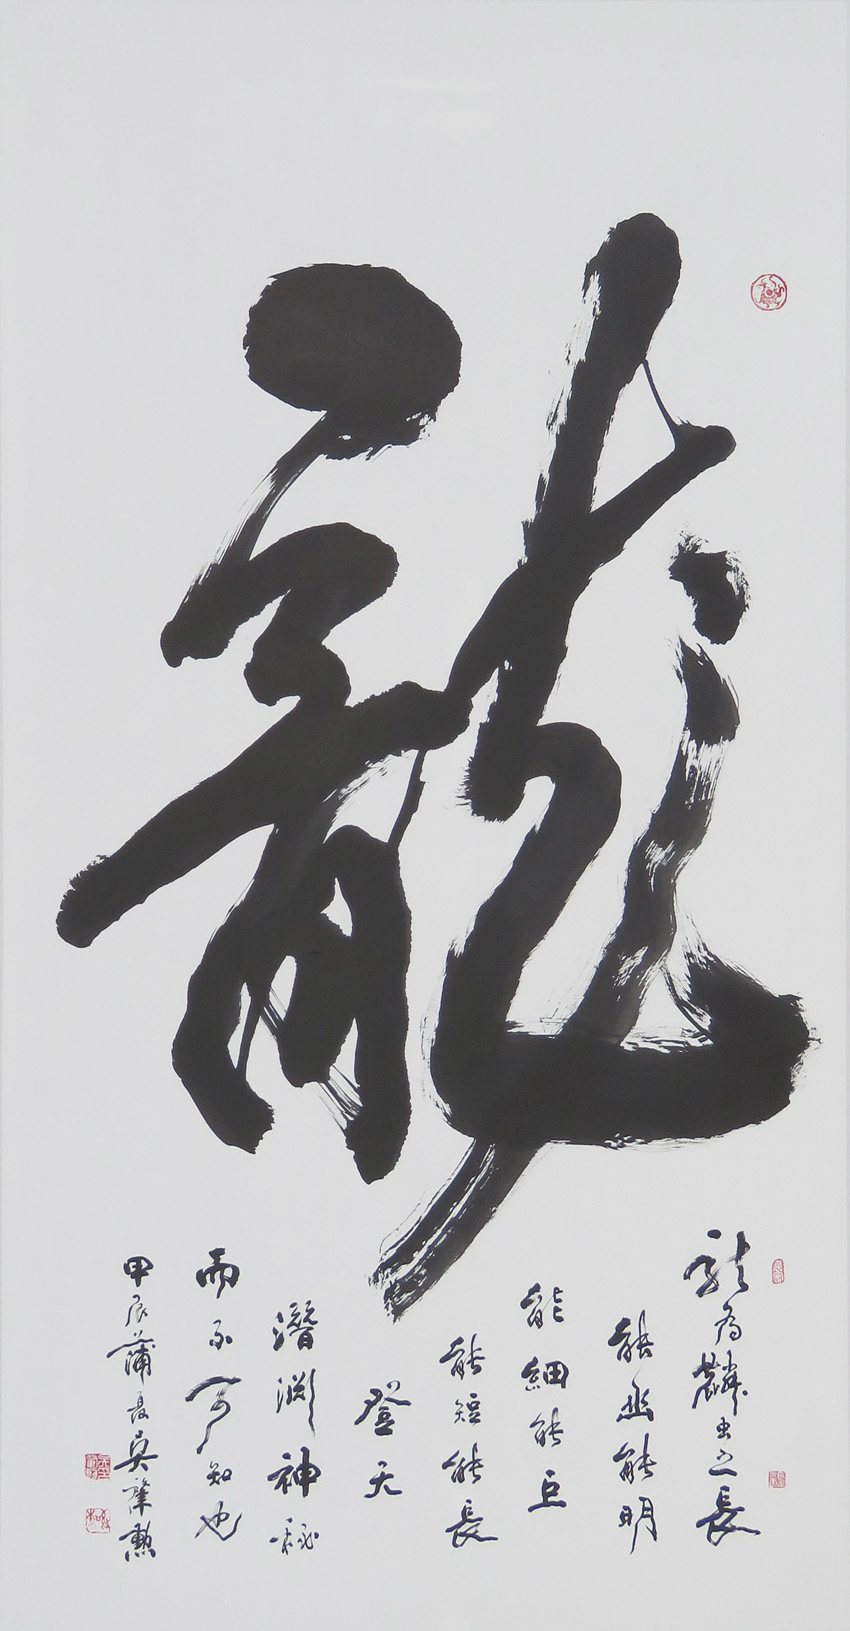 龍
龍為麟虫之長
能幽能明
能細能巨
能短能長
登天
潛淵神秘
而不可知也
甲辰蒲夏吳肇勲